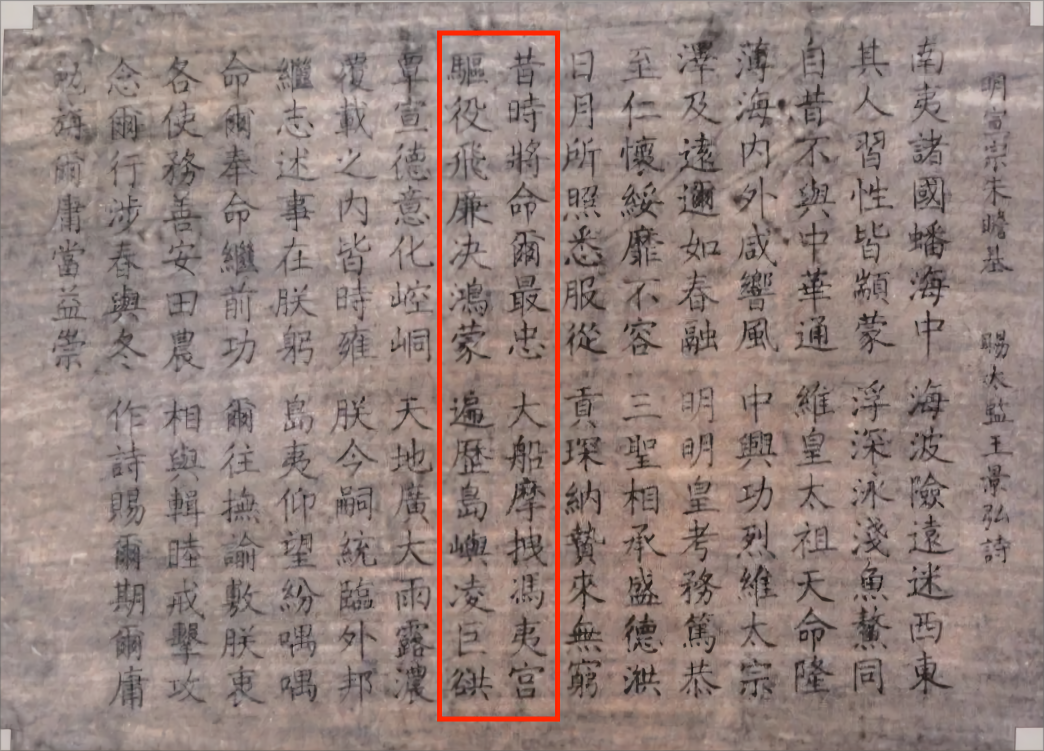 明宣宗朱瞻基 賜太監王景弘詩
南夷諸國蟠海中 海波險遠迷西東
其人習性皆顓蒙 浮深泳淺魚鰲同
自昔不與中華通 維皇太祖天命隆
薄海內外咸響風 中興功烈維太宗
澤及遠邇如春融 明明皇考務篤恭
至仁懷綏靡不容 三聖相承盛德洪
日月所照悉服從 貢琛納贄來無窮
昔時將命爾最忠 大船摩拽馮夷宮
驅役飛廉决鴻蒙 遍歷島嶼凌巨谼
覃宣德意化崆峒 天地廣大雨露濃
覆載之內皆時雍 朕今嗣統臨外邦
繼志述事在朕躬 島夷仰望紛喁喁
命爾奉命繼前功 爾往撫諭敷朕衷
各使務善安田農 相與輯睦戒擊攻
念爾行涉春與冬 作詩賜爾期爾庸
勉旃爾庸當益崇